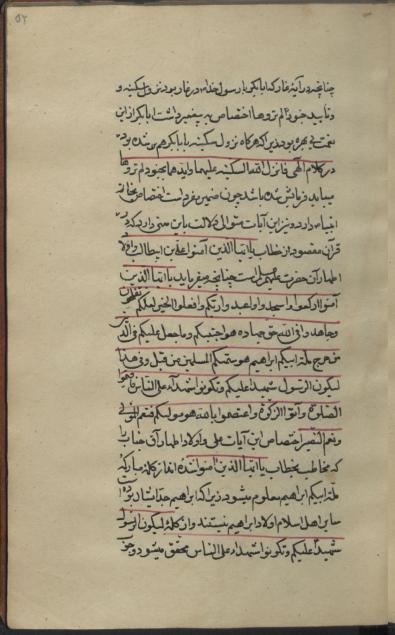 ۵۲
چنانچه در آیهٔ غار که ابابکر با رسول خدا در غار بود نزول سکینه و
و تایید جنود لم تروها اختصاص به پیغمبر داشت ابابکر از این
نعمت بی بهره بود زیرا که هرگاه نزول سکینه با ابابکر هم شده بود
در کلام الٓهی فانزل الله السکینه علیهما و ایدهما بجنود لم تروها
میباید فرمایش شده باشد چون ضمیر مفرد است اختصاص بخاتم
انبیاء دارد و نیز این آیات متواله دلالت باین معنی دارد که در
قرآن مقصود از خطاب یا ایها الذین آمنوا علی بن ابیطالب و اولاد
اطهار آن حضرت علیهم السلام است چنانچه میفرماید یا ایها الذین
آمنوا ارکعوا و اسجدوا و اعبدوا ربکم و افعلوا الخیر لعلکم تفلحون
و جاهدوا فی الله حق جهاده هو اجتبیکم و ما جعل علیکم فی الدین
من حرج ملة ابیکم ابراهیم هو سمیکم المسلمین من قبل و فی هذا
لیکون الرسول شهیدا علیکم و تکونوا شهداء علی الناس فاقیموا
الصلوة و آتوا الزکوة و اعتصموا بالله هو مولیکم فنعم المولی
و نعم النصیر اختصاص این آیات بعلی و اولاد اطهار آن جناب
که مخاطب بخطاب یا ایها الذین آمنوا شده اند از کلمهٔ مبارکه
ملة ابیکم ابراهیم معلوم میشود زیرا که ابراهیم جد ایشان بوده
سایر اهل اسلام اولاد ابراهیم نیستند و از کلمهٔ لیکون الرسول
شهیدا علیکم و تکونوا شهداء علی الناس محقق میشود